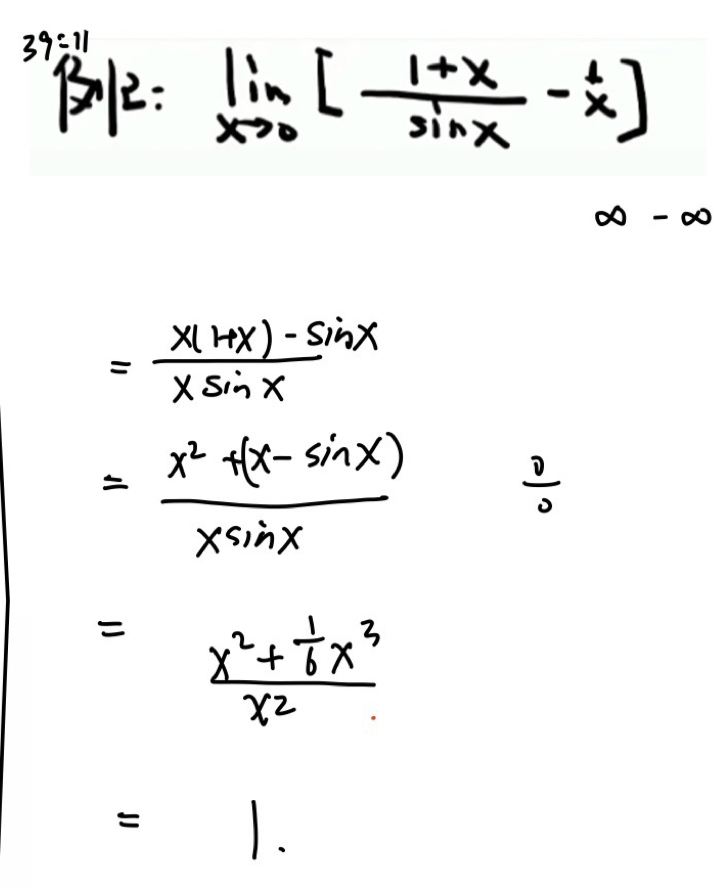 39:11
例2: lim x→0 [ (1+x)/(sin x) - 1/x ]
∞ - ∞
= (x(1+x) - sin x)/(x sin x)
= (x² + (x - sin x))/(x sin x)
0/0
= (x² + 1/6 x³)/(x²)
= 1.